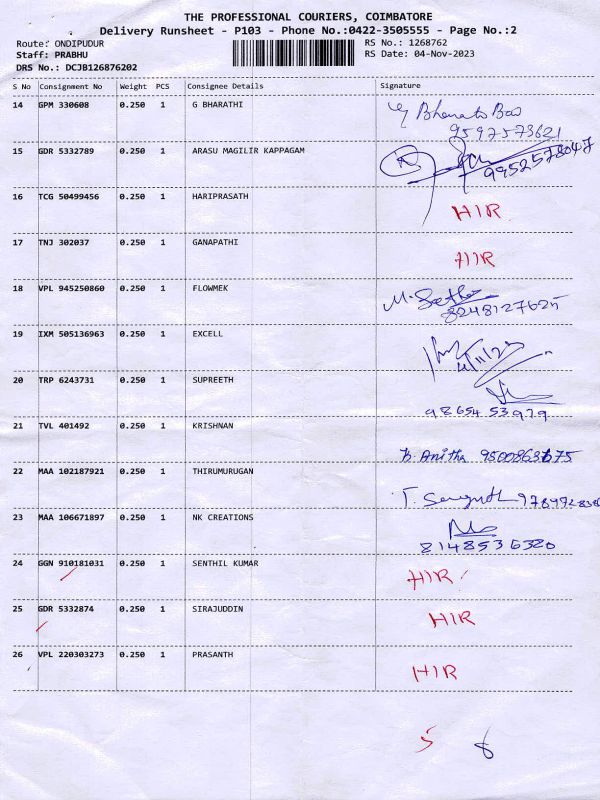 THE PROFESSIONAL COURIERS, COIMBATORE
Delivery Runsheet - P103 - Phone No.:0422-3505555 - Page No.:2
Route: ONDIPUDUR
RS No.: 1268762
Staff: PRABHU
RS Date: 04-Nov-2023
DRS No.: DCJB126876202
S No Consignment No Weight PCS Consignee Details Signature
14 GPM 330608 0.250 1 G BHARATHI
9597573621
15 GDR 5332789 0.250 1 ARASU MAGILIR KAPPAGAM
9952578047
16 TCG 50499456 0.250 1 HARIPRASATH
HIR
17 TNJ 302037 0.250 1 GANAPATHI
HIR
18 VPL 945250860 0.250 1 FLOWMEK
8248127625
19 IXM 505136963 0.250 1 EXCELL
4/11/23
20 TRP 6243731 0.250 1 SUPREETH
9865453979
21 TVL 401492 0.250 1 KRISHNAN
B. Anitha 9500863675
22 MAA 102187921 0.250 1 THIRUMURUGAN
23 MAA 106671897 0.250 1 NK CREATIONS
8148536320
24 GGN 910181031 0.250 1 SENTHIL KUMAR
HIR
25 GDR 5332874 0.250 1 SIRAJUDDIN
HIR
26 VPL 220303273 0.250 1 PRASANTH
HIR
5 8